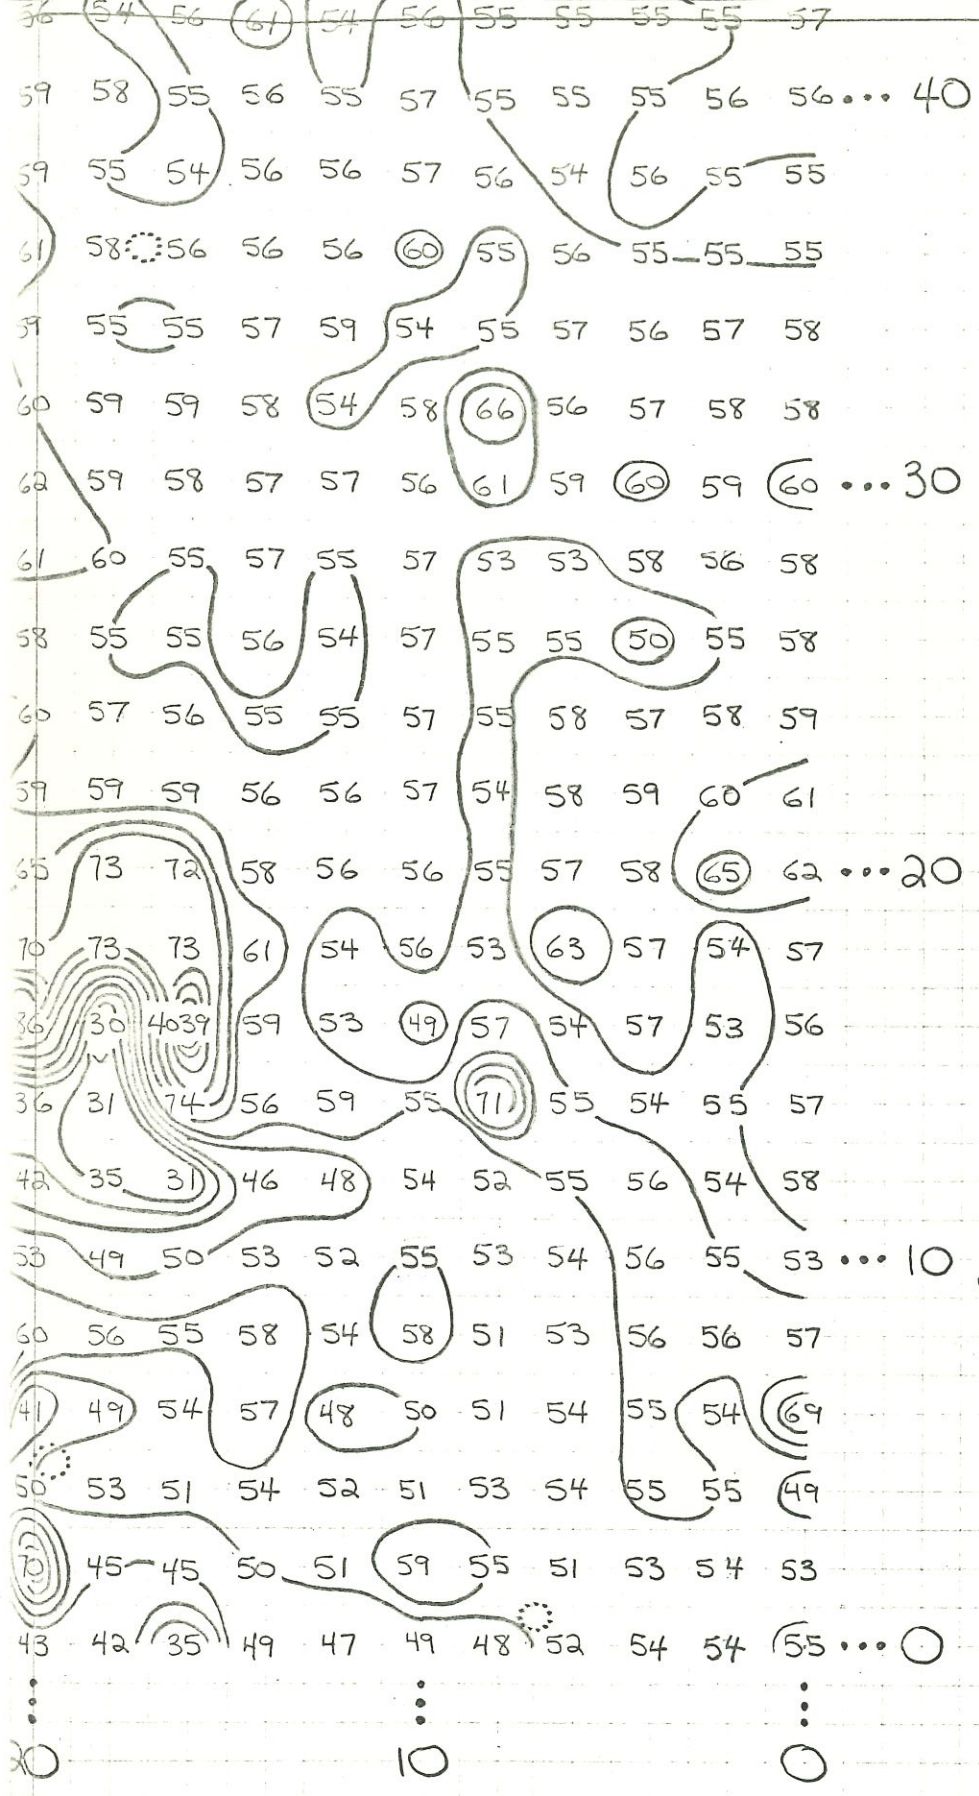 56 54 56 61 54 56 55 55 55 55 57
59 58 55 56 55 57 55 55 55 56 56 ... 40
59 55 54 56 56 57 56 54 56 55 55
61 58 56 56 56 60 55 56 55 55 55
59 55 55 57 59 54 55 57 56 57 58
60 59 59 58 54 58 66 56 57 58 58
62 59 58 57 57 56 61 59 60 59 60 ... 30
61 60 55 57 55 57 53 53 58 56 58
58 55 55 56 54 57 55 55 50 55 58
60 57 56 55 55 57 55 58 57 58 59
59 59 59 56 56 57 54 58 59 60 61
65 73 72 58 56 56 55 57 58 65 62 ... 20
70 73 73 61 54 56 53 63 57 54 57
36 30 40 39 59 53 49 57 54 57 53 56
36 31 74 56 59 55 71 55 54 55 57
42 35 31 46 48 54 52 55 56 54 58
53 49 50 53 52 55 53 54 56 55 53 ... 10
60 56 55 58 54 58 51 53 56 56 57
41 49 54 57 48 50 51 54 55 54 69
50 53 51 54 52 51 53 54 55 55 49
70 45 45 50 51 59 55 51 53 54 53
43 42 35 49 47 49 48 52 54 54 55 ... 0
20 10 0